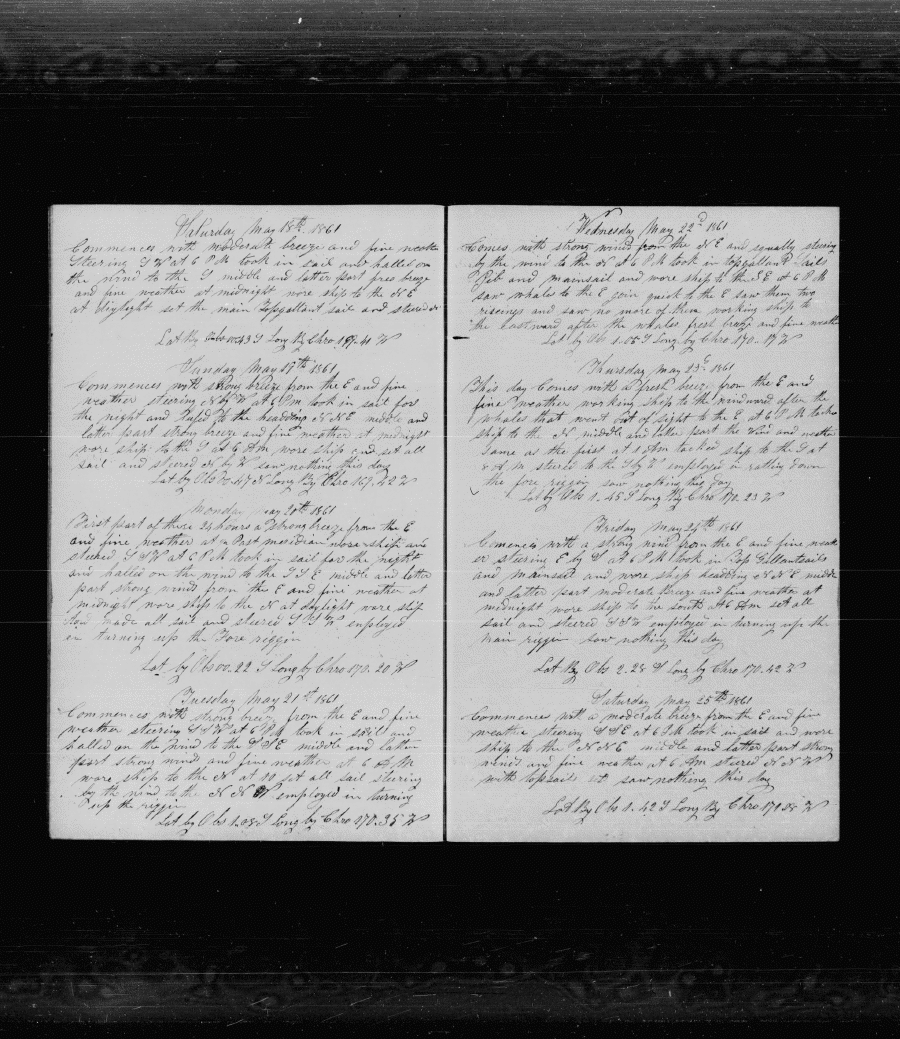 Saturday May 18th 1861
Commences with moderate breeze and fine weather
Steering S W at 6 P M took in sail and halled on
the wind to the S middle and latter part fres breeze
and fine weather at midnight wore ship to the N E
at diylight set the main topgallant sail and steered
Lat By Obs 00.43 S Long By Chro 169.41 W
Sunday May 19th 1861
Commences with strong breeze from the E and fine
weather steering N by W at 6 P m took in sail for
the night and Lufed to the heading N N E middle and
latter part strong breeze and fine weather at midnight
wore ship to the S at 6 A M wore ship and set all
sail and steered N by W saw nothing this day
Lat by Obs 00 47 N Long By Chro 169.42 W
Monday May 20th 1861
First part of these 24 hours a strong breeze from the E
and fine weather at Post meridian wore ship and
steered S S W at 6 P M took in sail for the night
and halled on the wind to the S S E middle and latter
part strong winds from the E and fine weather at
midnight wore ship to the N at daylight wore ship
made all sail and steered S S W employed
en turning up the Fore riggin
Lat by Obs 00.22 S Long by Chro 170.20 W
Tuesday May 21st 1861
Commences with strong breeze from the E and fine
weather steering S S W at 6 P M took in sail and
halled on the wind to the S S E middle and latter
part strong winds and fine weather at 6 A M
wore ship to the N at 10 set all sail steering
by the wind to the N N W employed in turning
up the riggin
Lat by Obs 1.08 S Long by Chro 170.35 W
Wednesday May 22d 1861
Comes with strong wind from the N E and squally steering
by the wind to the N at 6 P M took in topgallant Sails
Jib and mainsail and wore ship to the S E at 6 P M
saw whales to the E join quick to the E saw them two
riseings and saw no more of them working ship to
the eastward after the whales fresh breeze and fine weather
Lat by Obs 1.05 S Long by Chro 170.17 W
Thursday May 23d 1861
This day Comes with a fresh breeze from the E and
fine weather working ship to the windward after the
whales that went out of sight to the E at 6 P M tacked
ship to the N middle and latter part the wind and weather
Same as the first at 1 Am tacked ship to the S at
8 A M stered to the S by W employed in ratling down
the fore riggin saw nothing this day
Lat by Obs 1.45 S Long By Chro 170.23 W
Friday May 24th 1861
Comences with a strong wind from the E and fine weath
er steering E by S at 6 P M took in Top Gallantsails
and mainsail and wore ship heading N N E middle
and latter part moderate breeze and fine weather at
midnight wore ship to the south at 6 Am set all
sail and steered S S W employed in turning up the
main riggin saw nothing this day
Lat By Obs 2.28 S Long by Chro 170.42 W
Saturday May 25th 1861
Commences with a moderate breeze from the E and fine
weather steering S S E at 6 P M took in sail and wore
ship to the N N E middle and latter part strong
winds and fine weather at 6 Am steered N N W
with topsails set saw nothing this day
Lat By Obs 1.42 S Long By Chro 170.58 W